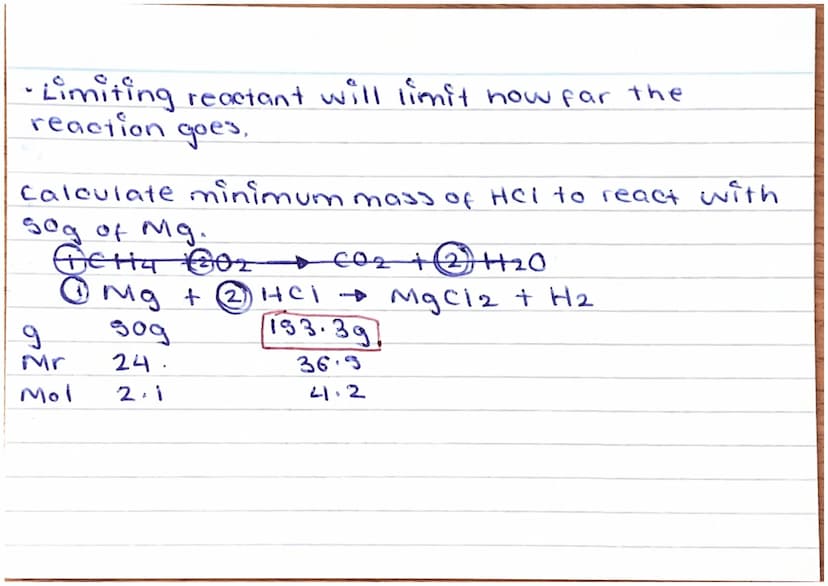 · Limiting reactant will limit how far the
reaction goes.
Calculate minimum mass of HCl to react with
50g of Mg.
① CH4 + ②O2 → CO2 + ② H2O
① Mg + ② HCl → MgCl2 + H2
g 50g 153.3g
Mr 24. 36.5
Mol 2.1 4.2